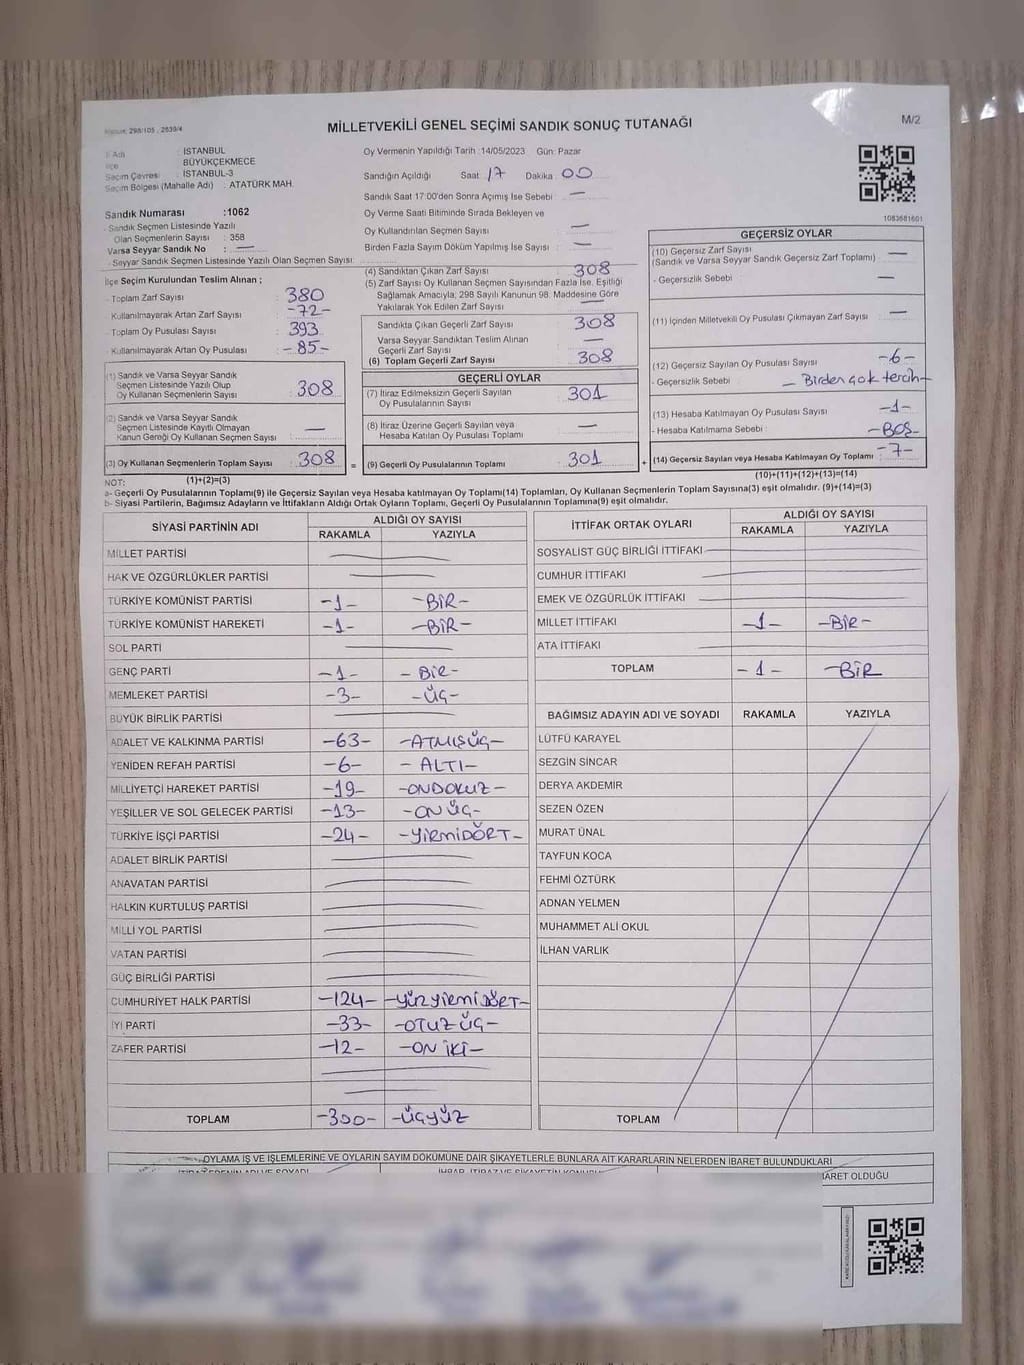 298/105 , 2839/4
MİLLETVEKİLİ GENEL SEÇİMİ SANDIK SONUÇ TUTANAĞI
M/2
İl Adı : İSTANBUL
İlçe : BÜYÜKÇEKMECE
Seçim Çevresi : İSTANBUL-3
Seçim Bölgesi (Mahalle Adı) : ATATÜRK MAH.
Sandık Numarası :1062
- Sandık Seçmen Listesinde Yazılı
Olan Seçmenlerin Sayısı : 358
Varsa Seyyar Sandık No : —
- Seyyar Sandık Seçmen Listesinde Yazılı Olan Seçmen Sayısı:
Oy Vermenin Yapıldığı Tarih :14/05/2023 Gün: Pazar
Sandığın Açıldığı Saat : 17 Dakika : 00
Sandık Saat 17:00'den Sonra Açımış İse Sebebi : —
Oy Verme Saati Bitiminde Sırada Bekleyen ve
Oy Kullandırılan Seçmen Sayısı : —
Birden Fazla Sayım Döküm Yapılmış İse Sayısı : —
1083681601
İlçe Seçim Kurulundan Teslim Alınan ;
- Toplam Zarf Sayısı : 380
- Kullanılmayarak Artan Zarf Sayısı : -72-
- Toplam Oy Pusulası Sayısı : 393
- Kullanılmayarak Artan Oy Pusulası : -85-
(1) Sandık ve Varsa Seyyar Sandık
Seçmen Listesinde Yazılı Olup
Oy Kullanan Seçmenlerin Sayısı : 308
(2) Sandık ve Varsa Seyyar Sandık
Seçmen Listesinde Kayıtlı Olmayan
Kanun Gereği Oy Kullanan Seçmen Sayısı : —
(3) Oy Kullanan Seçmenlerin Toplam Sayısı : 308
(1)+(2)=(3)
(4) Sandıktan Çıkan Zarf Sayısı : 308
(5) Zarf Sayısı Oy Kullanan Seçmen Sayısından Fazla İse, Eşitliği
Sağlamak Amacıyla; 298 Sayılı Kanunun 98. Maddesine Göre
Yakılarak Yok Edilen Zarf Sayısı : —
Sandıkta Çıkan Geçerli Zarf Sayısı : 308
Varsa Seyyar Sandıktan Teslim Alınan
Geçerli Zarf Sayısı : —
(6) Toplam Geçerli Zarf Sayısı : 308
GEÇERLİ OYLAR
(7) İtiraz Edilmeksizin Geçerli Sayılan
Oy Pusulalarının Sayısı : 301
(8) İtiraz Üzerine Geçerli Sayılan veya
Hesaba Katılan Oy Pusulası Toplamı : —
= (9) Geçerli Oy Pusulalarının Toplamı : 301 +
GEÇERSİZ OYLAR
(10) Geçersiz Zarf Sayısı : —
(Sandık ve Varsa Seyyar Sandık Geçersiz Zarf Toplamı)
- Geçersizlik Sebebi : —
(11) İçinden Milletvekili Oy Pusulası Çıkmayan Zarf Sayısı : —
(12) Geçersiz Sayılan Oy Pusulası Sayısı : -6-
- Geçersizlik Sebebi : - Birden çok tercih-
(13) Hesaba Katılmayan Oy Pusulası Sayısı : -1-
- Hesaba Katılmama Sebebi : -Boş-
(14) Geçersiz Sayılan veya Hesaba Katılmayan Oy Toplamı : -7-
(10)+(11)+(12)+(13)=(14)
NOT:
a- Geçerli Oy Pusulalarının Toplamı(9) ile Geçersiz Sayılan veya Hesaba katılmayan Oy Toplamı(14) Toplamları, Oy Kullanan Seçmenlerin Toplam Sayısına(3) eşit olmalıdır. (9)+(14)=(3)
b- Siyasi Partilerin, Bağımsız Adayların ve İttifakların Aldığı Ortak Oyların Toplamı, Geçerli Oy Pusulalarının Toplamına(9) eşit olmalıdır.
SİYASİ PARTİNİN ADI ALDIĞI OY SAYISI
RAKAMLA YAZIYLA
MİLLET PARTİSİ —
HAK VE ÖZGÜRLÜKLER PARTİSİ —
TÜRKİYE KOMÜNİST PARTİSİ -1- -BİR-
TÜRKİYE KOMÜNİST HAREKETİ -1- -BİR-
SOL PARTİ —
GENÇ PARTİ -1- -BİR-
MEMLEKET PARTİSİ -3- -ÜÇ-
BÜYÜK BİRLİK PARTİSİ —
ADALET VE KALKINMA PARTİSİ -63- -ATMIŞÜÇ-
YENİDEN REFAH PARTİSİ -6- -ALTI-
MİLLİYETÇİ HAREKET PARTİSİ -19- -ONDOKUZ-
YEŞİLLER VE SOL GELECEK PARTİSİ -13- -ONÜÇ-
TÜRKİYE İŞÇİ PARTİSİ -24- -YİRMİDÖRT-
ADALET BİRLİK PARTİSİ —
ANAVATAN PARTİSİ —
HALKIN KURTULUŞ PARTİSİ —
MİLLİ YOL PARTİSİ —
VATAN PARTİSİ —
GÜÇ BİRLİĞİ PARTİSİ —
CUMHURİYET HALK PARTİSİ -124- -YÜZYİRMİDÖRT-
İYİ PARTİ -33- -OTUZÜÇ-
ZAFER PARTİSİ -12- -ON İKİ-
TOPLAM -300- -ÜÇYÜZ
İTTİFAK ORTAK OYLARI ALDIĞI OY SAYISI
RAKAMLA YAZIYLA
SOSYALİST GÜÇ BİRLİĞİ İTTİFAKI —
CUMHUR İTTİFAKI —
EMEK VE ÖZGÜRLÜK İTTİFAKI —
MİLLET İTTİFAKI -1- -BİR-
ATA İTTİFAKI —
TOPLAM -1- -BİR
BAĞIMSIZ ADAYIN ADI VE SOYADI RAKAMLA YAZIYLA
LÜTFÜ KARAYEL
SEZGİN SİNCAR
DERYA AKDEMİR
SEZEN ÖZEN
MURAT ÜNAL
TAYFUN KOCA
FEHMİ ÖZTÜRK
ADNAN YELMEN
MUHAMMET ALİ OKUL
İLHAN VARLIK
TOPLAM
OYLAMA İŞ VE İŞLEMLERİNE VE OYLARIN SAYIM DÖKÜMÜNE DAİR ŞİKAYETLERLE BUNLARA AİT KARARLARIN NELERDEN İBARET BULUNDUKLARI
İTİRAZ EDENİN ADI VE SOYADI İHBAR, İTİRAZ VE ŞİKAYETİN KONUSU İBARET OLDUĞU